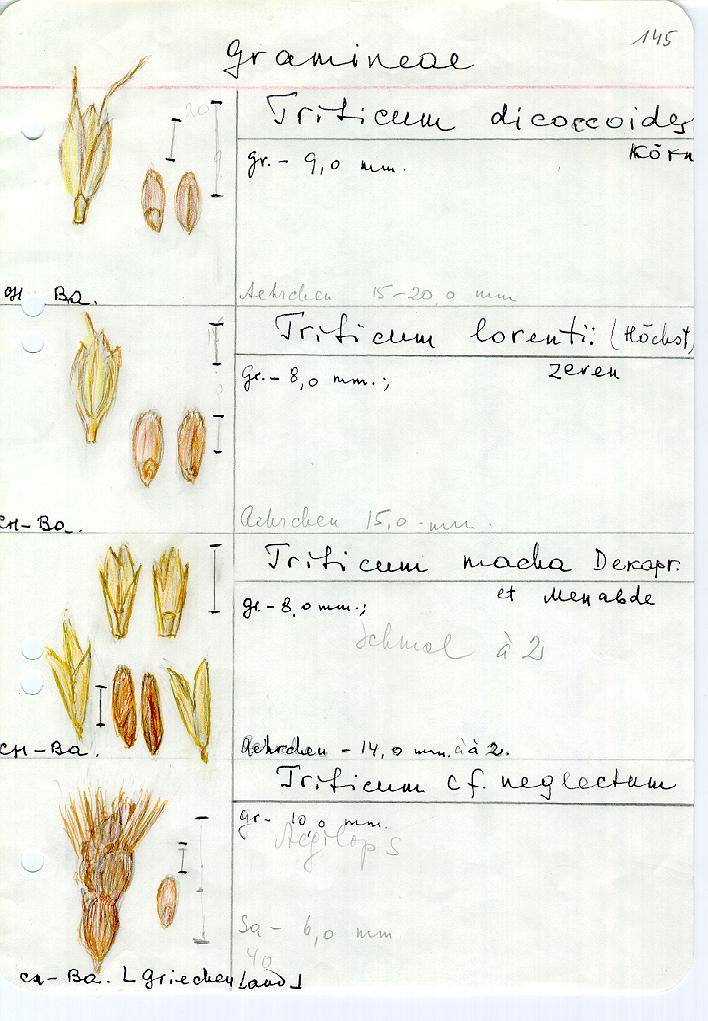 145
Gramineae
20
Triticum dicoccoides
Körn
gr. - 9,0 mm.
9
Aehrchen 15-20,0 mm
CH- Ba.
Triticum lorentii: (Höchst)
zeren
Gr. - 8,0 mm.;
Aehrchen 15,0 - mm.
CH-Ba.
Triticum macha Dekapr.
et Menabde
gr. - 8,0 mm.;
Schmal à 2
Aehrchen - 14,0 mm. àà 2.
CH-Ba.
Triticum cf. neglectum
gr - 10,0 mm.
Aegilops
Sa - 6,0 mm
40
CH-Ba. [Griechenland]